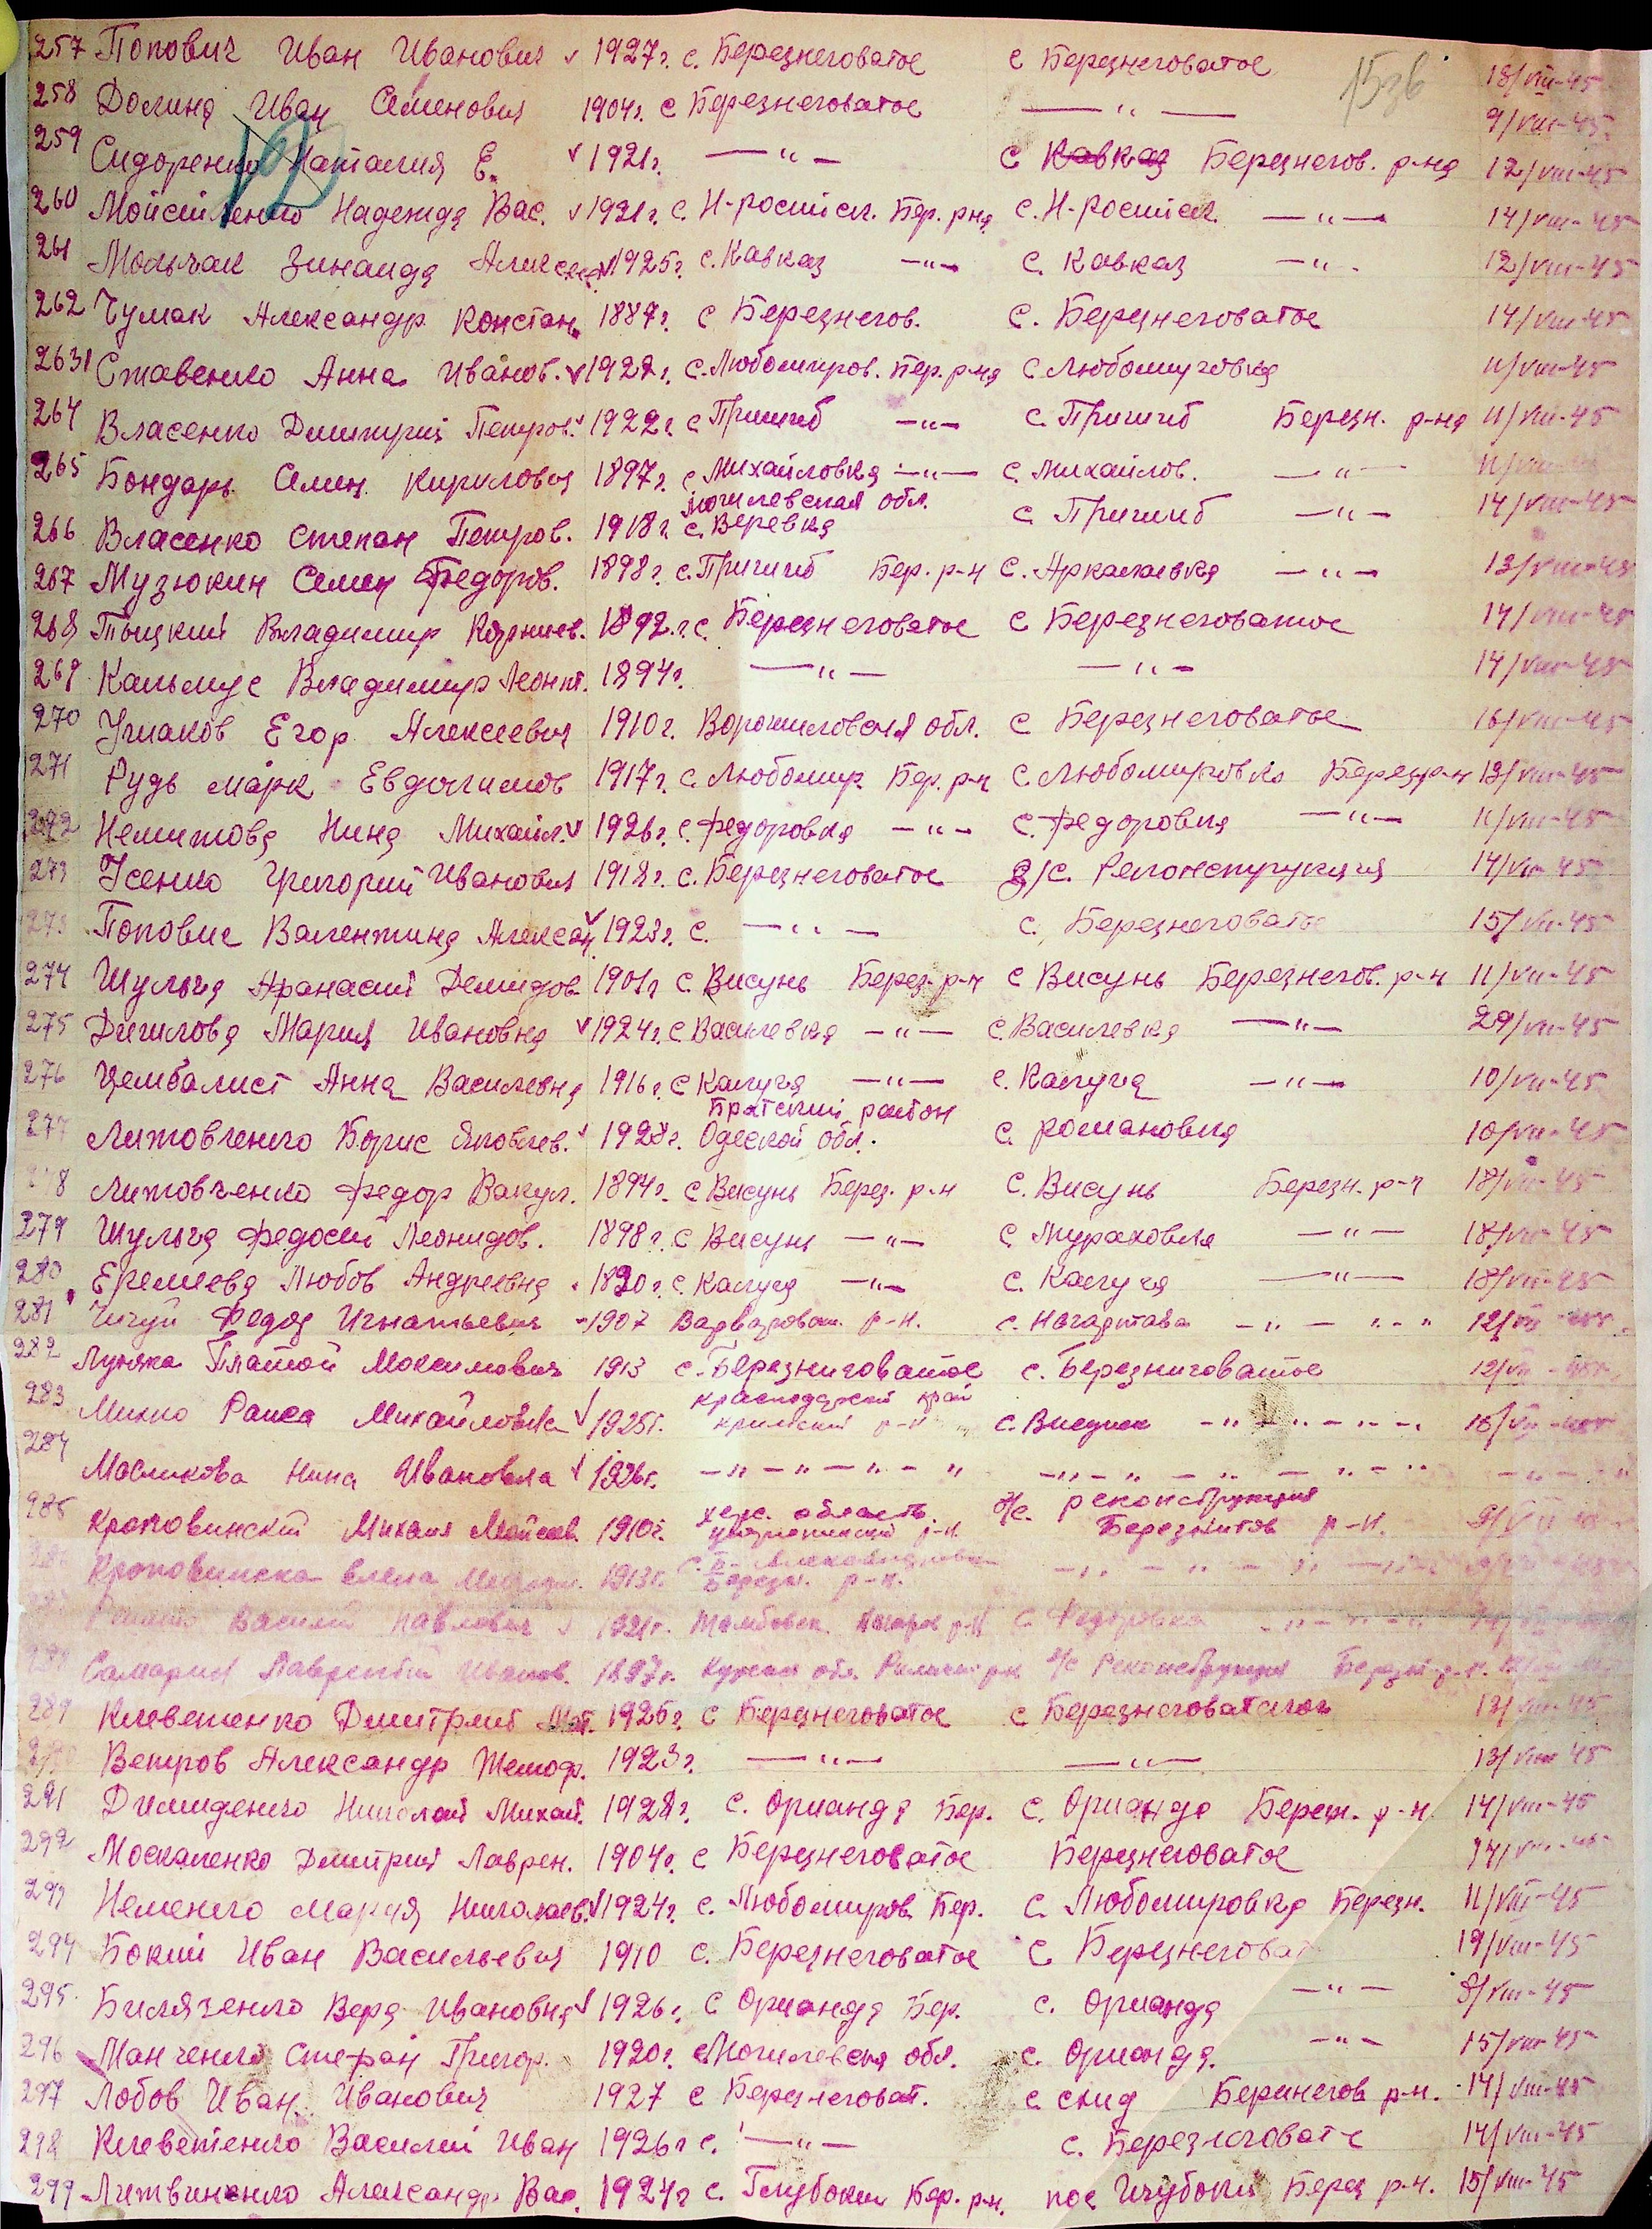 257 Попович Иван Иванович v 1927г. с. Березнеговатое с Березнеговатое 18/VIII-45
15зв
258 Долина Иван Семенович 1904г. с Березнеговатое —"— 9/VIII-45
259 Сидоренко Наталия Е. v 1921г. —"— с. Кавказ Березнегов. р-на 12/VIII-45
260 Мойсиленко Надежда Вас. v 1921г. с. Н-российск. Бер. рна с. Н-российск. —"— 14/VIII-45
261 Мольчак Зинаида Алексеев v 1925г. с. Кавказ —"— с. Кавказ —"— 12/VIII-45
262 Чумак Александр Констан. 1887г. с Березнегов. с. Березнеговатое 14/VIII-45
263 Ставенко Анна Иванов. v 1927г. с. Любомиров. Бер. р-на с Любомировка 11/VIII-45
264 Власенко Дмитрий Петров. v 1922г. с Пришиб —"— с. Пришиб Березн. р-на 11/VIII-45
265 Бондарь Семен Кирилович 1897г. с Михайловка —"— с. Михайлов. —"— 11/VIII-45
могилевская обл.
266 Власенко Степан Петров. 1918г. с. Веревка с. Пришиб —"— 14/VIII-45
267 Музюкин Семен Федоров. 1898г. с. Пришиб Бер. р-н с. Аркасиевка —"— 13/VIII-45
268 Тыцкий Владимир Корниев. 1892.г. с. Березнеговатое с Березнеговатое 14/VIII-45
269 Кальмус Владимир Леонт. 1894г. —"— —"— 14/VIII-45
270 Ушаков Егор Алексеевич 1910г. Ворошиловская обл. с Березнеговатое 16/VIII-45
271 Рудь Марк Евдокимов 1917г. с. Любомир. Бер. р-н с. Любомировка Березр-н 13/VIII-45
272 Немитова Нина Михайл. v 1926г. с. Федоровка —"— с. Федоровка —"— 11/VIII-45
273 Усенко Григорий Иванович 1918г. с. Березнеговатое з/с. Реконструкция 14/VIII-45
273 Попович Валентина Алексан v 1923г. с. —"— с. Березнеговатое 15/VIII-45
274 Шульга Афанасий Демидов 1901г с. Висунь Берез. р-н с Висунь Березнегов. р-н 11/VIII-45
275 Дигилова Мария Ивановна v 1924г. с Василевка —"— с. Василевка —"— 29/VII-45
276 Цембалист Анна Василевна 1916г. с Калуга —"— с. Калуга —"— 10/VIII-45
Братский район
277 Литовченко Борис Яковлев. 1928г. Одеской обл. с. Романовка 10/VIII-45
278 Литовченко Федор Вакул. 1894г. с Висунь Берез. р-н с. Висунь Березн. р-н 18/VII-45
279 Шульга Федосей Леонидов. 1898г. с Висунь —"— с. Мураховка —"— 18/VII-45
280 Еремеева Любов Андреевна 1890г. с. Калуга —"— с. Калуга —"— 18/VII-45
281 Чигуй Федор Игнатьевич 1907 Варваровск. р-н. с. Нагартава —"— "—" 12/VII-45г.
282 Луняка Платон Максимович 1913 с. Березниговатое с. Березниговатое 12/VII-45г.
краснодарский край
283 Михно Раиса Михайловна v 1925г. кримский р-н с. Висунск —"—"—"— 16/VII-45г
284 Масликова Нина Ивановна v 1926г. —"—"—"—" —"—"—"—" —"—"
херс. область з/с. реконструкция
285 Кроповинский Михаил Мойсеев. 1910г. р-н. Березнигов р-н.
286 Кроповинска Елена 1913г. —"—"—"—
Березн. р-н.
Василий Павлович v 1921г. Тамбовск. р-н с. Федоровка —"—"—"
288 Самарин Лаврентий Иванов. 1897г. Курская обл. з/с Реконструкция Березн. р-н.
289 Клеветенко Дмитрий Мат. 1926г. с Березнеговатое с Березнеговатского 13/VIII-45
290 Ветров Александр Тимоф. 1923г. —"— —"— 13/VIII 45
291 Димиденко Николай Михай. 1928г. с. Орианда Бер. с. Орианда Берез. р-н. 14/VIII-45
292 Москаленко Дмитрий Лаврен. 1904г. с Березнеговатое Березнеговатое 14/VIII-45
293 Неменко Мария Николаев. v 1924г. с. Любомиров. Бер. с. Любомировка Березн. 11/VIII-45
294 Бокий Иван Васильевич 1910 с. Березнеговатое с Березнеговат 19/VIII-45
295. Билязенко Вера Ивановна v 1926г. с Орианда Бер. с. Орианда —"— 8/VIII-45
296 Манченко Стефан Григор. 1920г. Могилевская обл. с. Орианда. —"— 15/VIII-45
297 Лобов Иван Иванович 1927 с Березнеговат. с скид Березнегов р-н. 14/VIII-45
298 Клеветенко Василий Иван 1926г с. —"— с. Березнеговате 14/VIII-45
299 Литвиненко Александр Вас. 1924г с. Глубокий Бер. р-н. пос Глубокий Берез р-н. 15/VIII-45